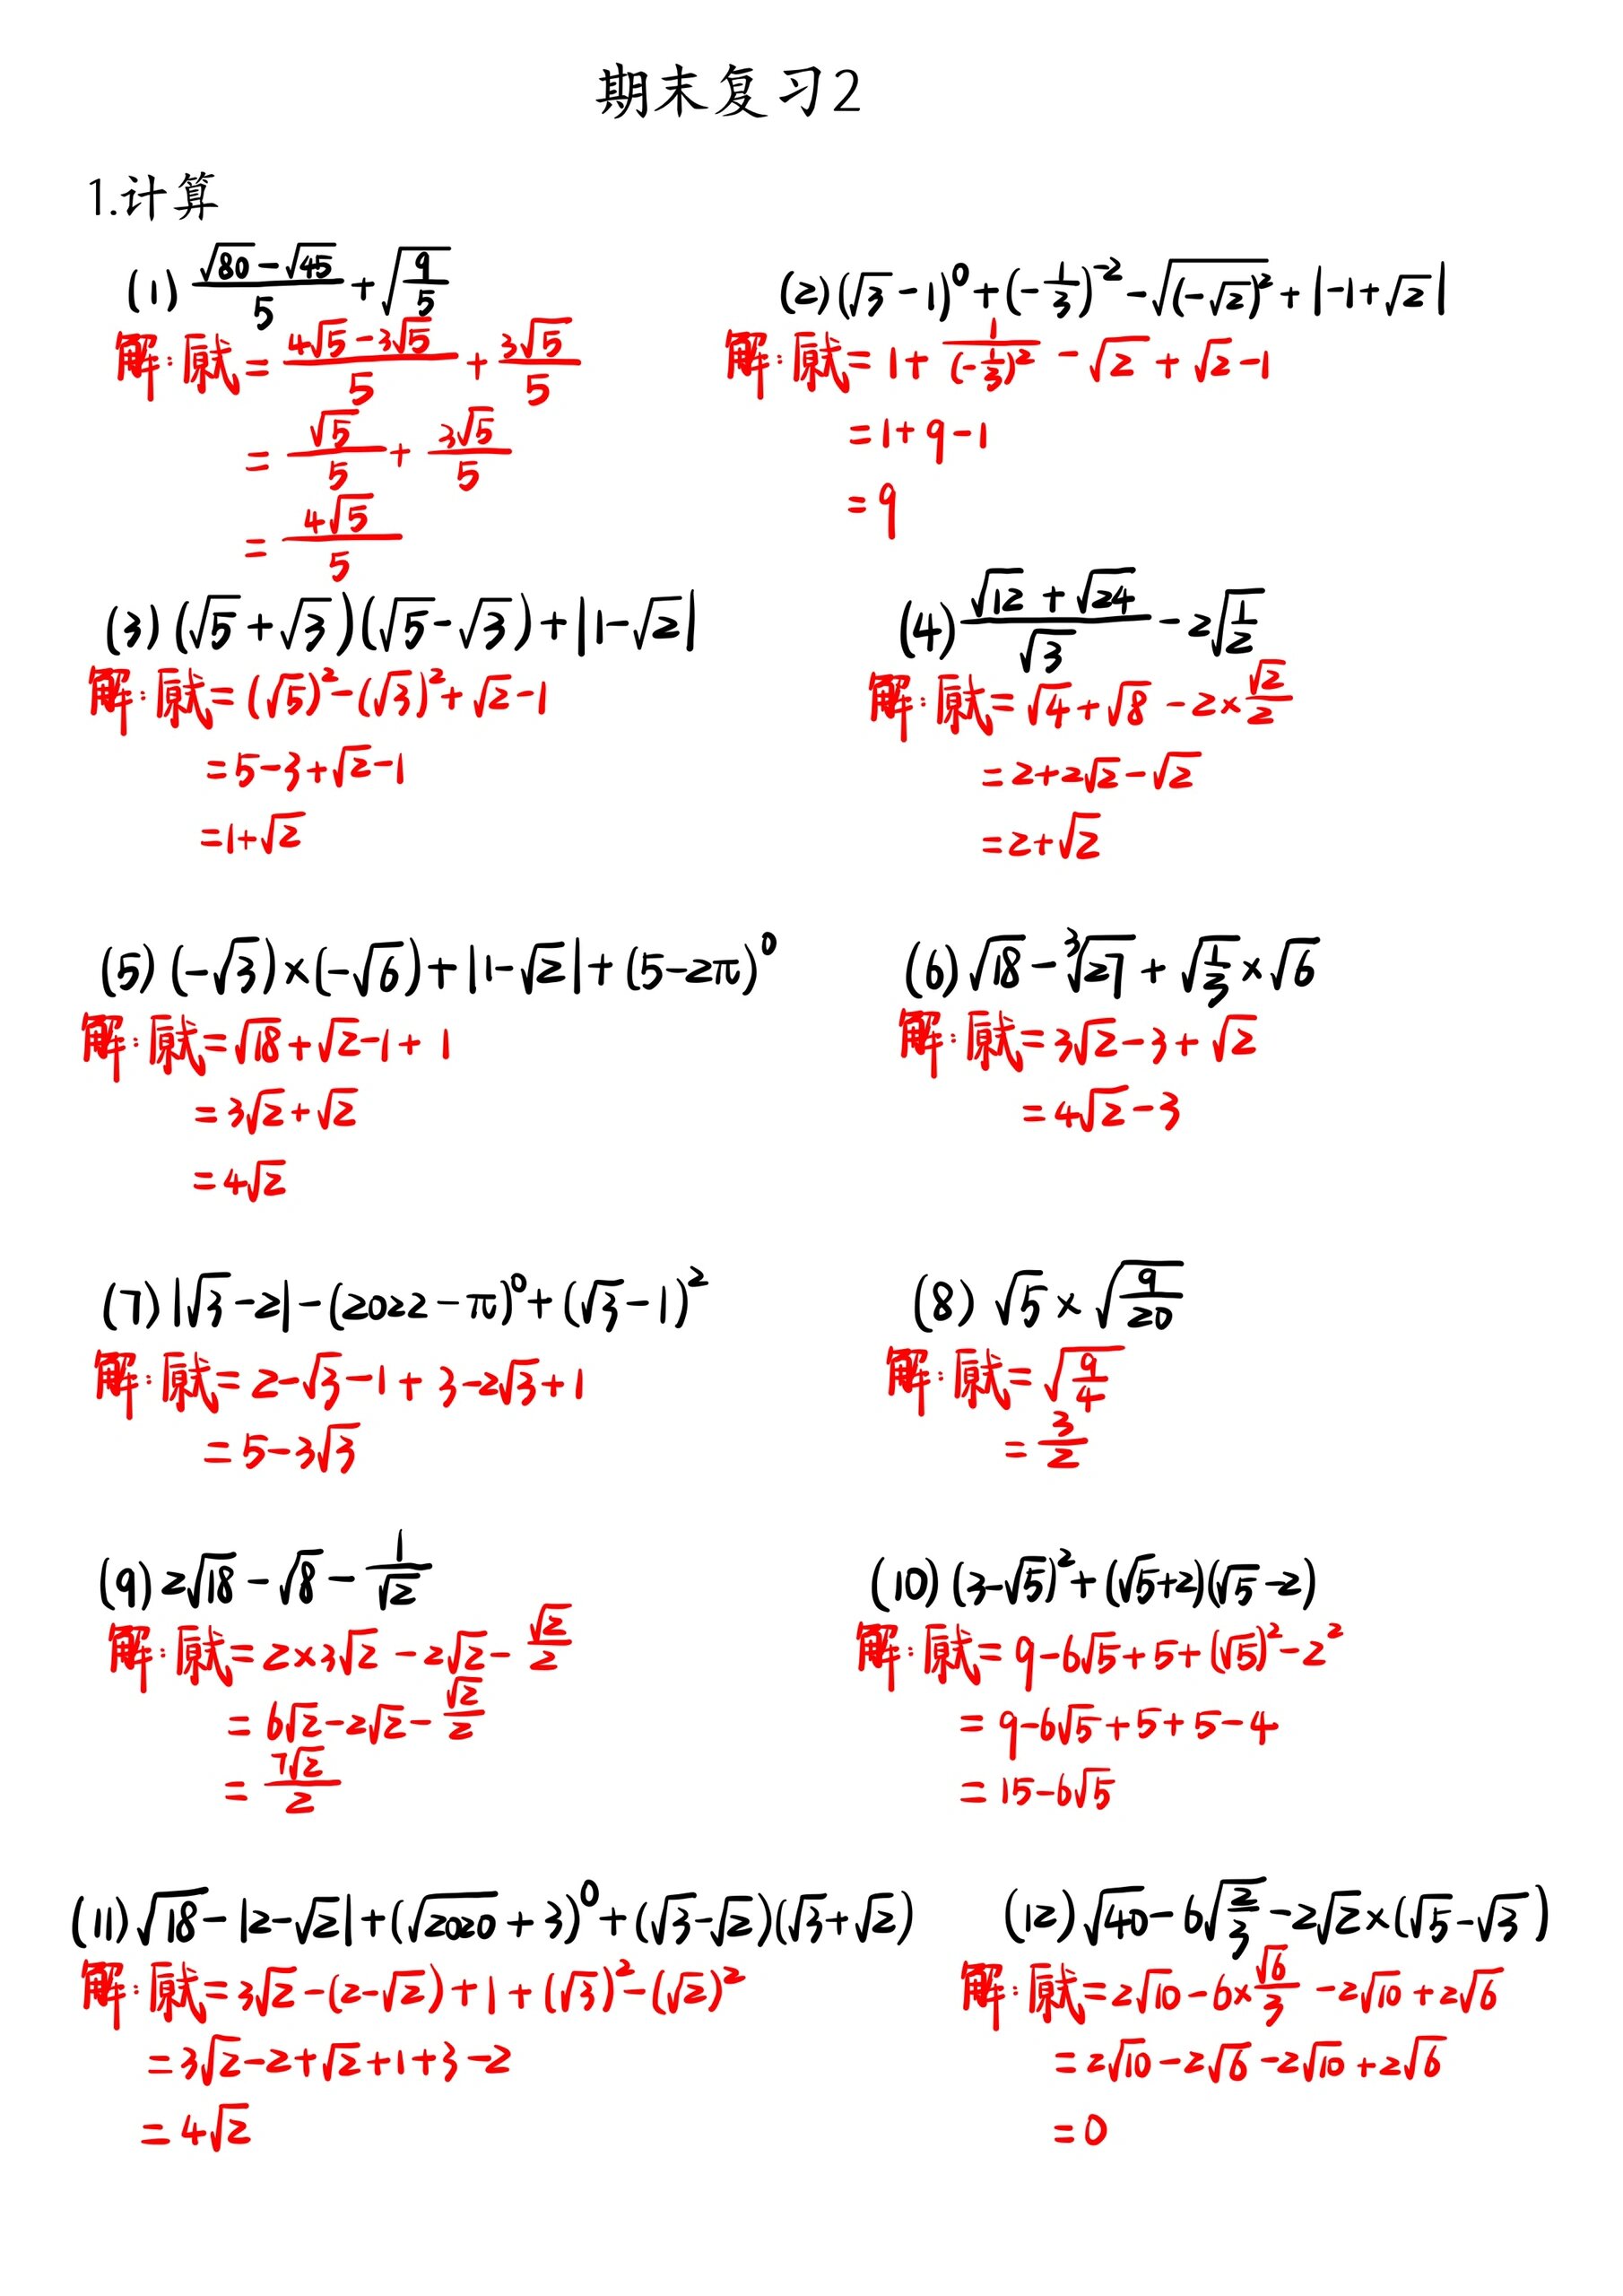 期末复习2
1.计算
(1) (√80-√45)/5+√(9/5)
解:原式=(4√5-3√5)/5+3√5/5
=√5/5+3√5/5
=4√5/5
(2)(√3-1)⁰+(-1/3)⁻²-√((-√2)²)+|-1+√2|
解:原式=1+1/(-1/3)²-√2+√2-1
=1+9-1
=9
(3) (√5+√3)(√5-√3)+|1-√2|
解:原式=(√5)²-(√3)²+√2-1
=5-3+√2-1
=1+√2
(4) (√12+√24)/√3-2√(1/2)
解:原式=√4+√8-2×√2/2
=2+2√2-√2
=2+√2
(5) (-√3)×(-√6)+|1-√2|+(5-2π)⁰
解:原式=√18+√2-1+1
=3√2+√2
=4√2
(6) √18-∛27+√(1/3)×√6
解:原式=3√2-3+√2
=4√2-3
(7) |√3-2|-(2022-π)⁰+(√3-1)²
解:原式=2-√3-1+3-2√3+1
=5-3√3
(8) √5×√(9/20)
解:原式=√(9/4)
=3/2
(9) 2√18-√8-1/√2
解:原式=2×3√2-2√2-√2/2
=6√2-2√2-√2/2
=7√2/2
(10) (3-√5)²+(√5+2)(√5-2)
解:原式=9-6√5+5+(√5)²-2²
=9-6√5+5+5-4
=15-6√5
(11) √18-|2-√2|+(√2020+3)⁰+(√3-√2)(√3+√2)
解:原式=3√2-(2-√2)+1+(√3)²-(√2)²
=3√2-2+√2+1+3-2
=4√2
(12) √40-6√(2/3)-2√2×(√5-√3)
解:原式=2√10-6×√6/3-2√10+2√6
=2√10-2√6-2√10+2√6
=0